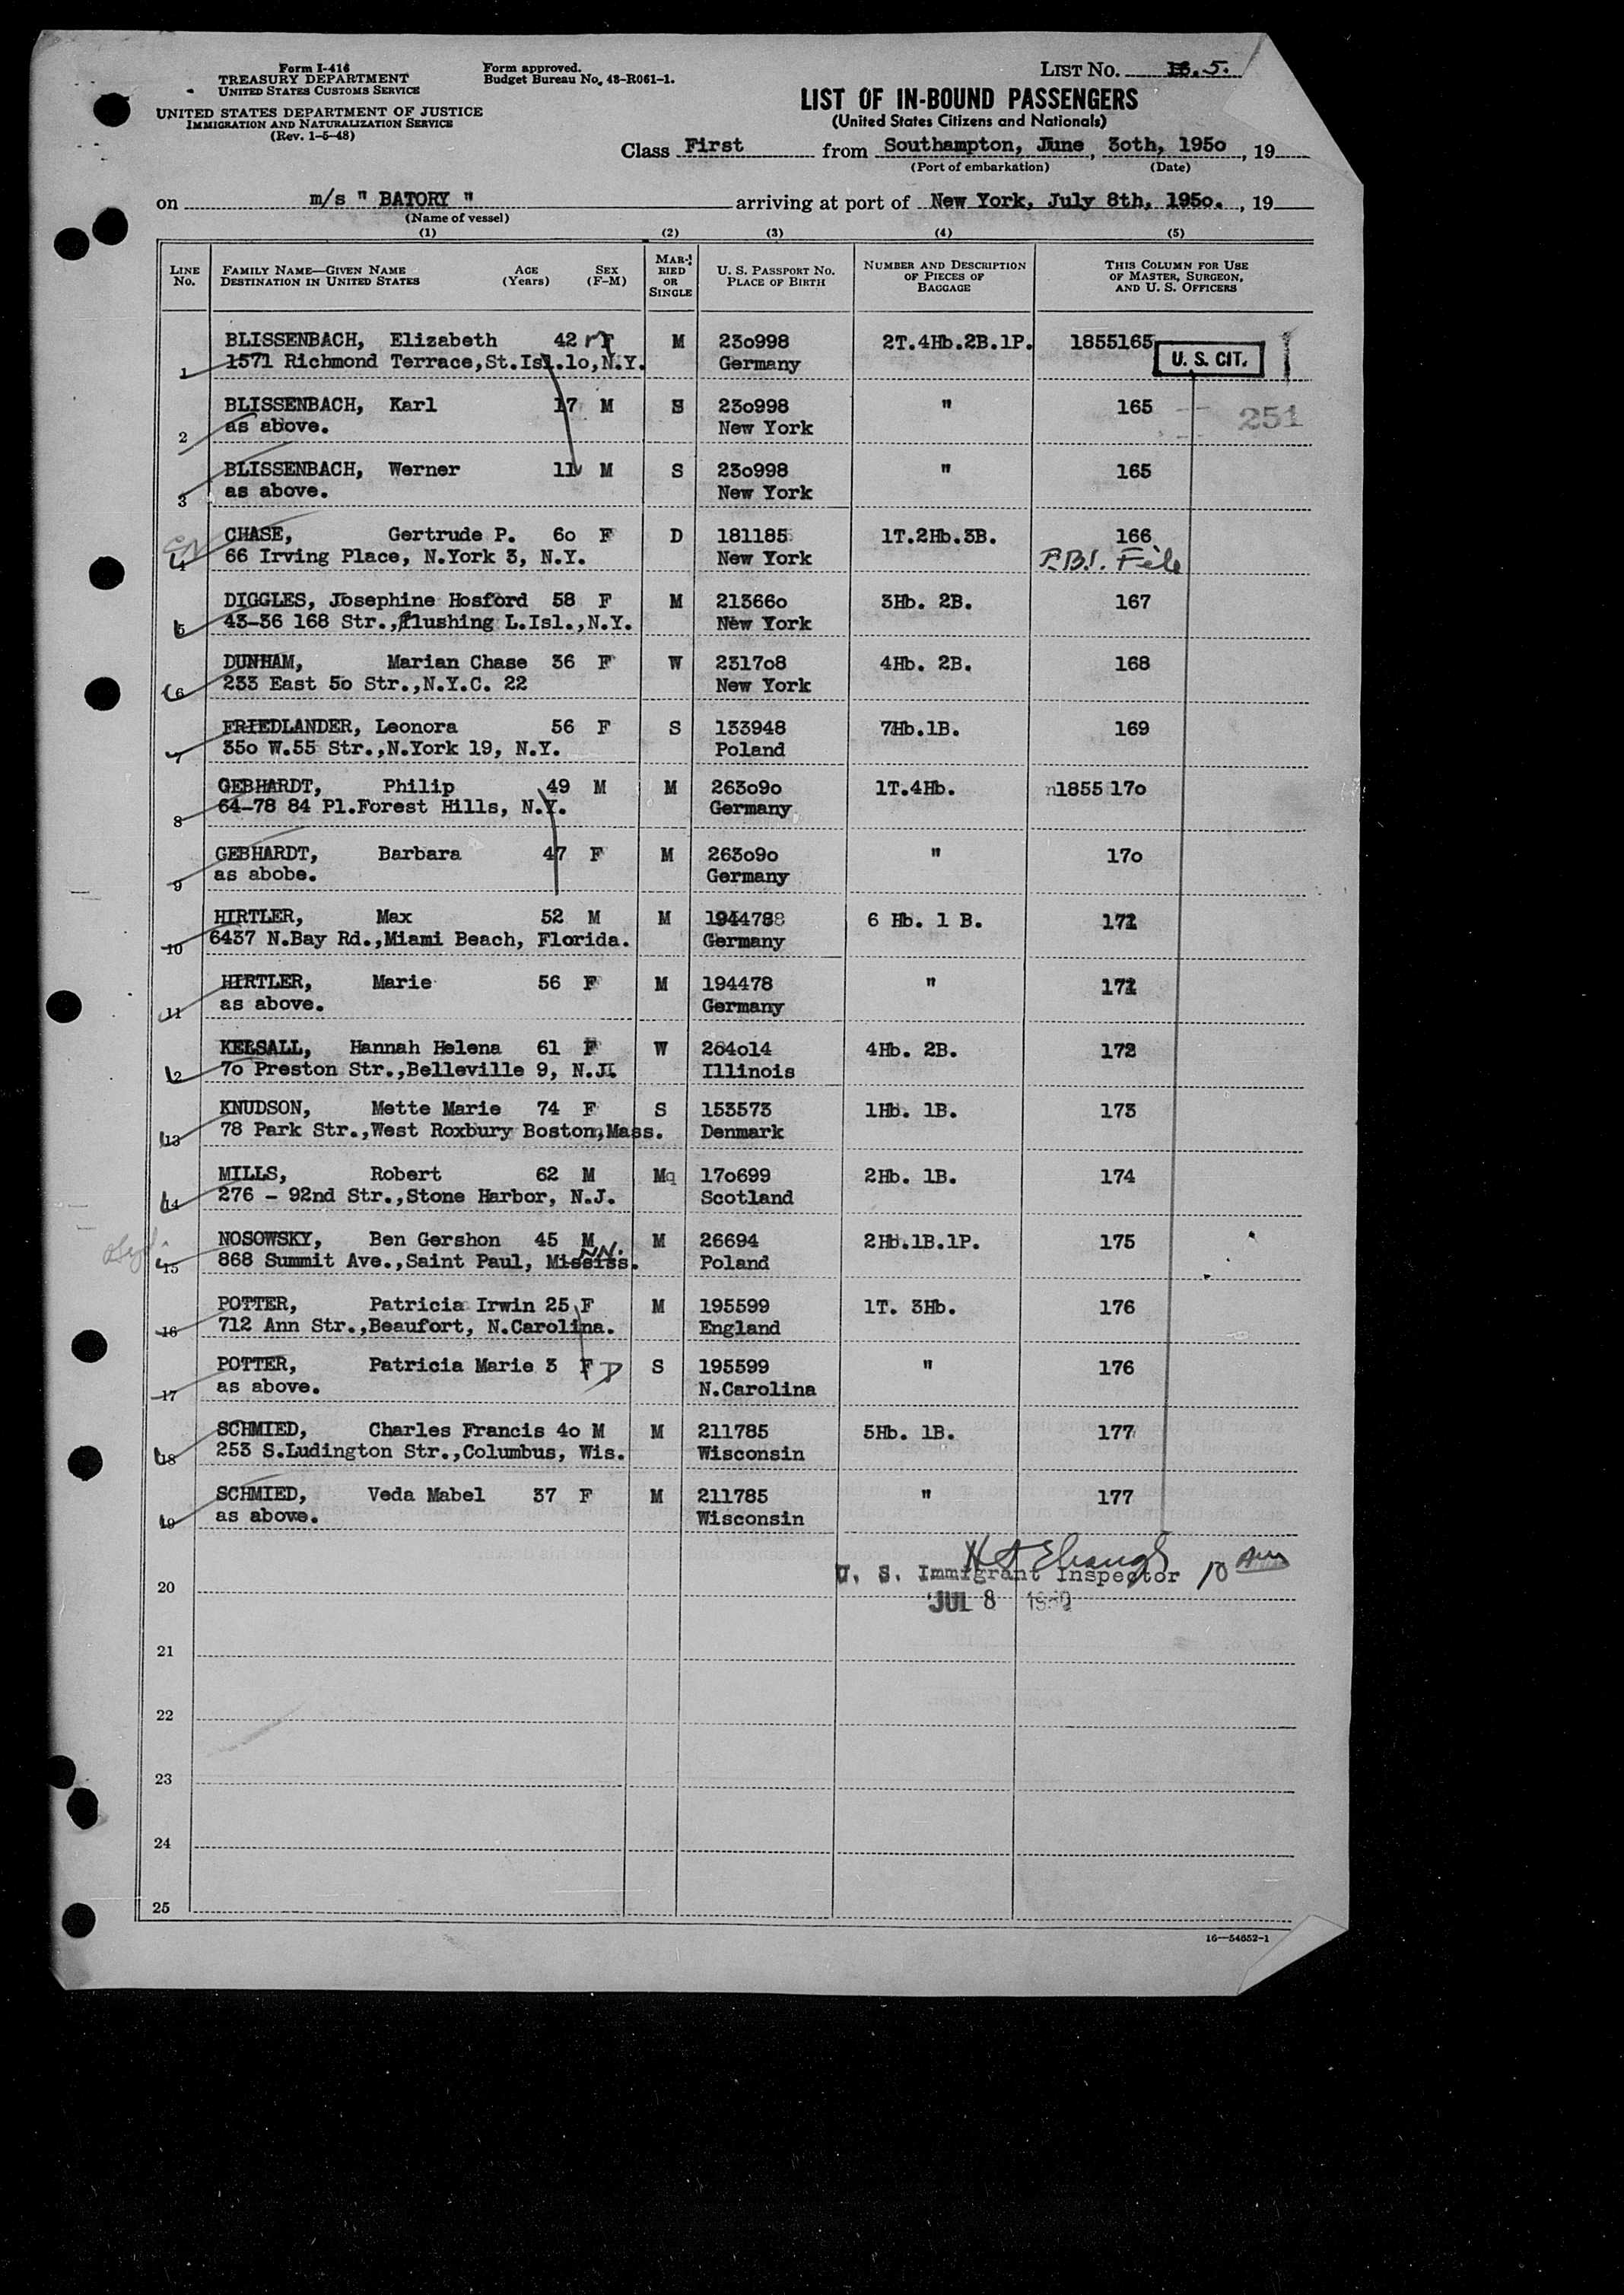 Form I-416
TREASURY DEPARTMENT
UNITED STATES CUSTOMS SERVICE
UNITED STATES DEPARTMENT OF JUSTICE
IMMIGRATION AND NATURALIZATION SERVICE
(Rev. 1-5-48)
Form approved.
Budget Bureau No. 43-R061-1.
LIST NO. 5.
LIST OF IN-BOUND PASSENGERS
(United States Citizens and Nationals)
Class First from Southampton, June, 3oth, 195o, 19
(Port of embarkation) (Date)
on m/s " BATORY " arriving at port of New York, July 8th, 195o., 19
(Name of vessel)
(1) (2) (3) (4) (5)
LINE No. FAMILY NAME—GIVEN NAME DESTINATION IN UNITED STATES AGE (Years) SEX (F-M) MARRIED OR SINGLE U. S. PASSPORT NO. PLACE OF BIRTH NUMBER AND DESCRIPTION OF PIECES OF BAGGAGE THIS COLUMN FOR USE OF MASTER, SURGEON, AND U. S. OFFICERS
BLISSENBACH, Elizabeth 42 F M 23o998 2T.4Hb.2B.1P. 1855165
1 1571 Richmond Terrace,St.Isl.1o,N.Y. Germany U. S. CIT.
BLISSENBACH, Karl 17 M S 23o998 " 165 251
2 as above. New York
BLISSENBACH, Werner 11 M S 23o998 " 165
3 as above. New York
CHASE, Gertrude P. 6o F D 181185 1T.2Hb.3B. 166
4 66 Irving Place, N.York 3, N.Y. New York F.B.I. File
DIGGLES, Josephine Hosford 58 F M 21366o 3Hb. 2B. 167
5 43-36 168 Str.,flushing L.Isl.,N.Y. New York
DUNHAM, Marian Chase 36 F W 2317o8 4Hb. 2B. 168
6 233 East 5o Str.,N.Y.C. 22 New York
FRIEDLANDER, Leonora 56 F S 133948 7Hb.1B. 169
7 35o W.55 Str.,N.York 19, N.Y. Poland
GEBHARDT, Philip 49 M M 263o9o 1T.4Hb. 1855 17o
8 64-78 84 Pl.Forest Hills, N.Y. Germany
GEBHARDT, Barbara 47 F M 263o9o " 17o
9 as abobe. Germany
HIRTLER, Max 52 M M 194478 6 Hb. 1 B. 171
10 6437 N.Bay Rd.,Miami Beach, Florida. Germany
HIRTLER, Marie 56 F M 194478 " 171
11 as above. Germany
KELSALL, Hannah Helena 61 F W 264o14 4Hb. 2B. 172
12 7o Preston Str.,Belleville 9, N.J. Illinois
KNUDSON, Mette Marie 74 F S 153573 1Hb. 1B. 173
13 78 Park Str.,West Roxbury Boston,Mass. Denmark
MILLS, Robert 62 M M 17o699 2Hb. 1B. 174
14 276 - 92nd Str.,Stone Harbor, N.J. Scotland
NOSOWSKY, Ben Gershon 45 M M 26694 2Hb.1B.1P. 175
15 868 Summit Ave.,Saint Paul, Mississ. NN. Poland
POTTER, Patricia Irwin 25 F M 195599 1T. 3Hb. 176
16 712 Ann Str.,Beaufort, N.Carolina. England
POTTER, Patricia Marie 3 F S 195599 " 176
17 as above. N.Carolina
SCHMIED, Charles Francis 4o M M 211785 5Hb. 1B. 177
18 253 S.Ludington Str.,Columbus, Wis. Wisconsin
SCHMIED, Veda Mabel 37 F M 211785 " 177
19 as above. Wisconsin
20 U. S. Immigrant Inspector 10 am
JUL 8 1950
21
22
23
24
25
16—54652-1